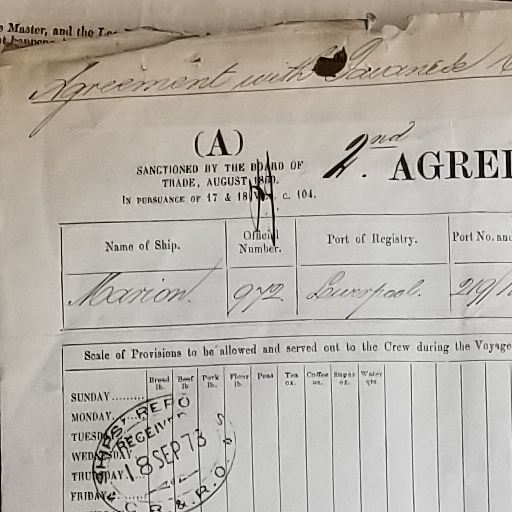 e Master, and the Lo
Agreement with Javanese
(A)
SANCTIONED BY THE BOARD OF
TRADE, AUGUST
IN PURSUANCE OF 17 & 18 c. 104.
2nd AGREE
Name of Ship. Official Number. Port of Registry. Port No. and
Marion. 972 Liverpool. 219/
Scale of Provisions to be allowed and served out to the Crew during the Voyage
Bread lb. Beef lb Pork lb. Flour lb. Peas Tea oz. Coffee oz. Sugar oz. Water qts.
SUNDAY
MONDAY
TUESDAY
WEDNESDAY
THURSDAY
FRIDAY
RECEIVED
18 SEP 73